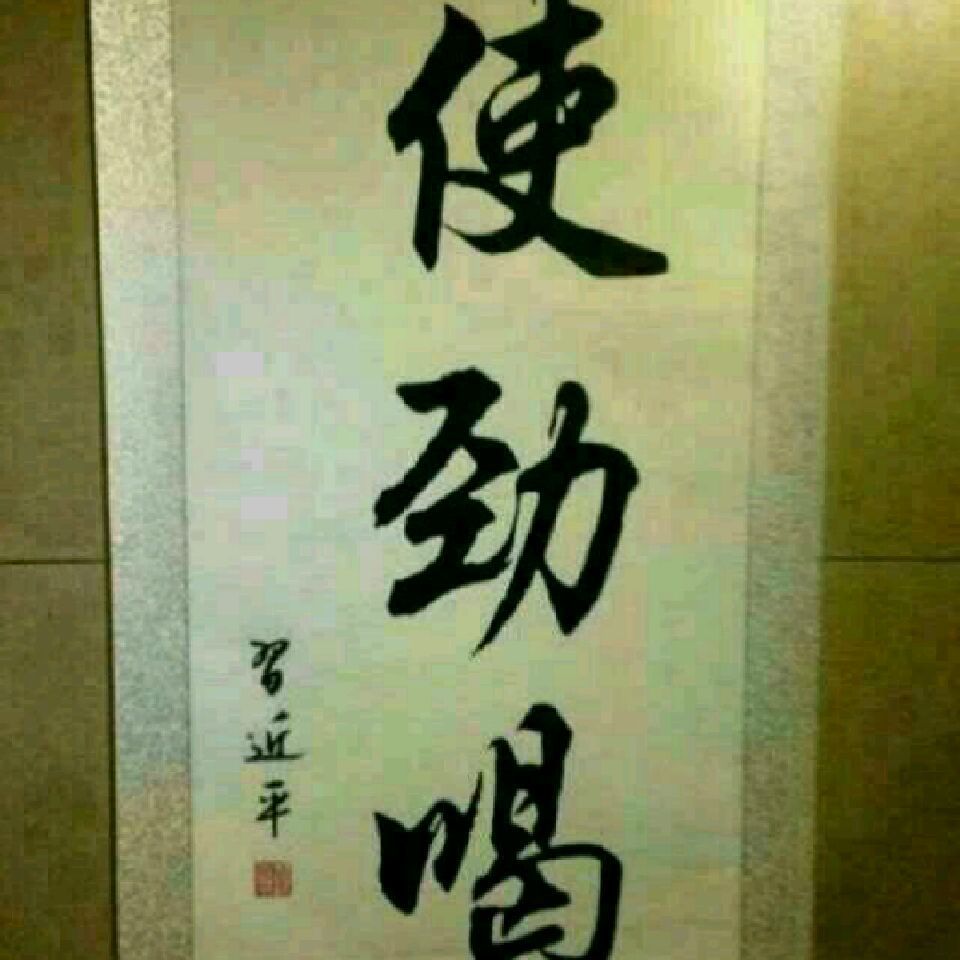 使劲喝
習近平